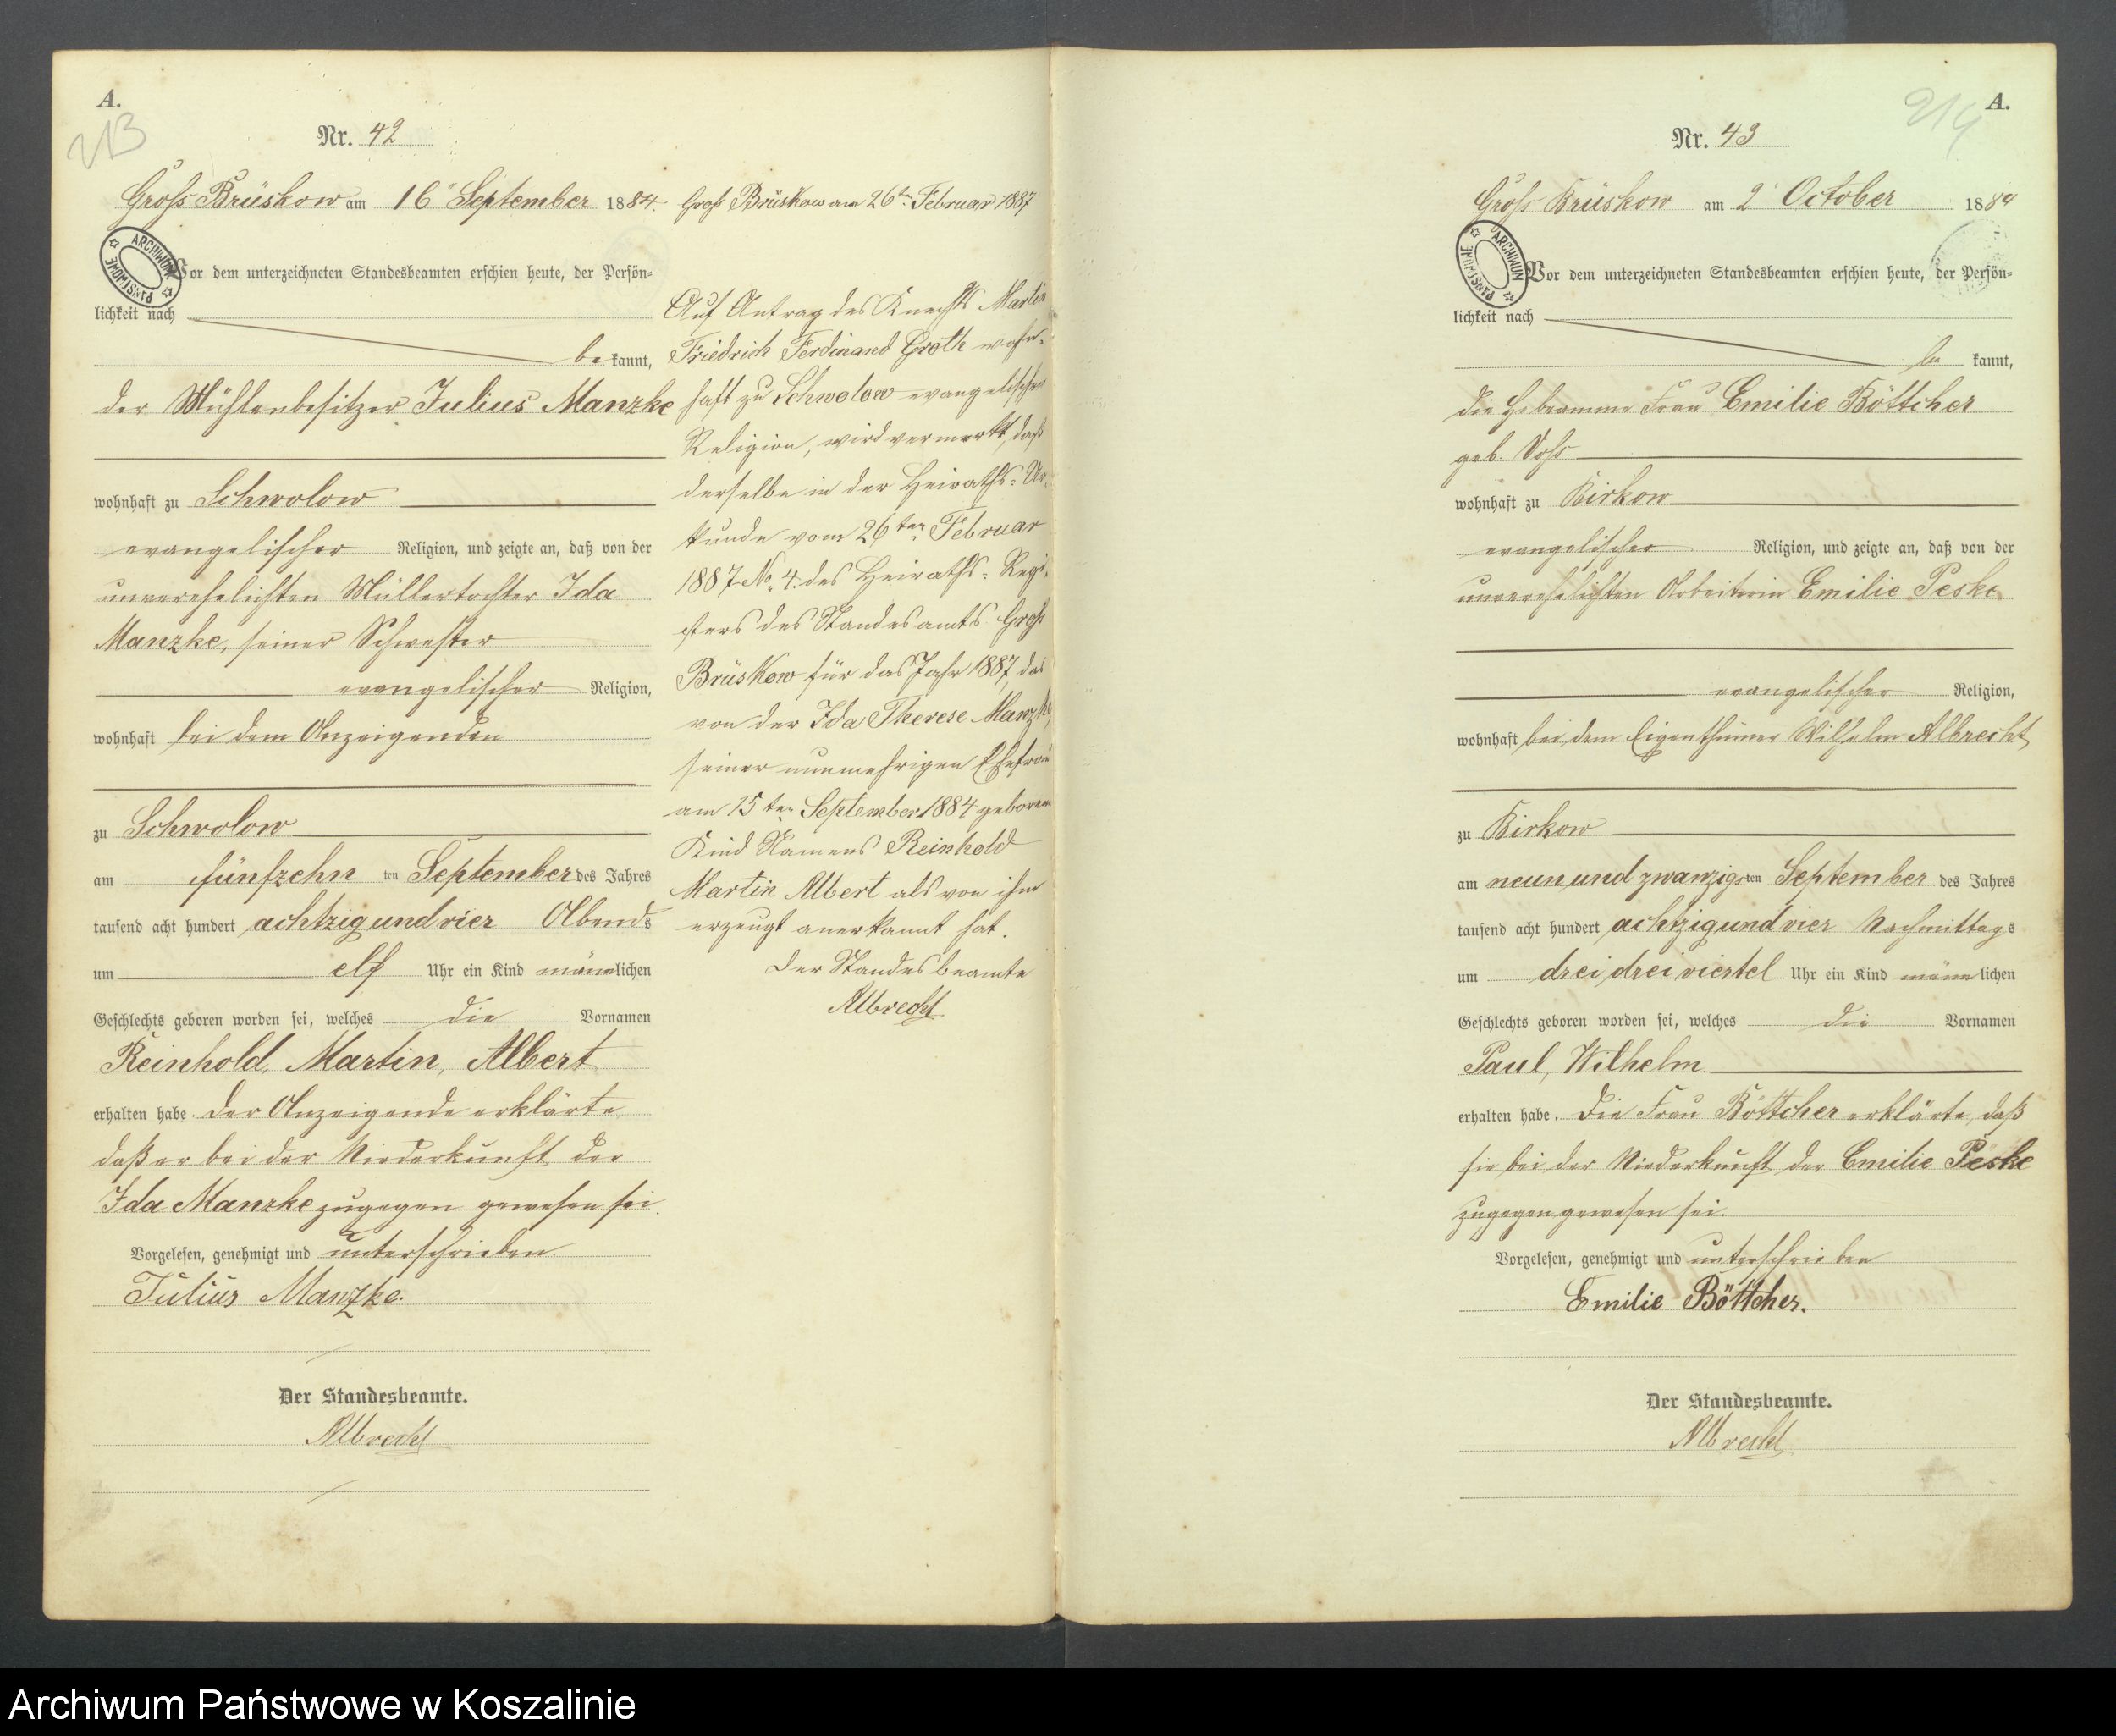 A.
213
Nr. 42
Gross Brüskow am 16 September 1884.
ARCHIWUM PAŃSTWOWE
Vor dem unterzeichneten Standesbeamten erschien heute, der Persön=
lichkeit nach
be kannt,
der Mühlenbesitzer Julius Manzke
wohnhaft zu Schwolow
evangelischer Religion, und zeigte an, daß von der
unverehelichten Müllertochter Ida
Manzke, seiner Schwester
evangelischer Religion,
wohnhaft bei dem Anzeigenden
zu Schwolow
am fünfzehn ten September des Jahres
tausend acht hundert achtzig und vier Abends
um elf Uhr ein Kind männlichen
Geschlechts geboren worden sei, welches die Vornamen
Reinhold, Martin, Albert
erhalten habe. Der Anzeigende erklärte
daß er bei der Niederkunft der
Ida Manzke zugegen gewesen sei.
Vorgelesen, genehmigt und unterschrieben.
Julius Manzke.
Der Standesbeamte.
Albrecht
Groß Brüskow am 26ten Februar 1887
Auf Antrag des Knechts Martin
Friedrich Ferdinand Groth wohn-
haft zu Schwolow evangelischer
Religion, wird vermerkt, daß
derselbe in der Heiraths=Ur-
kunde vom 26ten Februar
1887 No 4. des Heiraths=Regi-
sters des Standesamts Groß
Brüskow für das Jahr 1887, das
von der Ida Therese Manzke,
seiner nunmehrigen Ehefrau
am 15ten September 1884 geborene
Kind Namens Reinhold
Martin Albert als von ihm
erzeugt anerkannt hat.
Der Standesbeamte
Albrecht
A.
214
Nr. 43
Gross Brüskow am 2 October 1884
ARCHIWUM PAŃSTWOWE
Vor dem unterzeichneten Standesbeamten erschien heute, der Persön=
lichkeit nach
be kannt,
die Hebeamme Frau Emilie Böttcher
geb. Voss
wohnhaft zu Birkow
evangelischer Religion, und zeigte an, daß von der
unverehelichten Arbeiterin Emilie Peske
evangelischer Religion,
wohnhaft bei dem Eigenthümer Wilhelm Albrecht
zu Birkow
am neun und zwanzigsten September des Jahres
tausend acht hundert achtzig und vier Nachmittags
um drei, drei viertel Uhr ein Kind männlichen
Geschlechts geboren worden sei, welches die Vornamen
Paul, Wilhelm
erhalten habe. Die Frau Böttcher erklärte, daß
sie bei der Niederkunft der Emilie Peske
zugegen gewesen sei.
Vorgelesen, genehmigt und unterschrieben
Emilie Böttcher.
Der Standesbeamte.
Albrecht
Archiwum Państwowe w Koszalinie